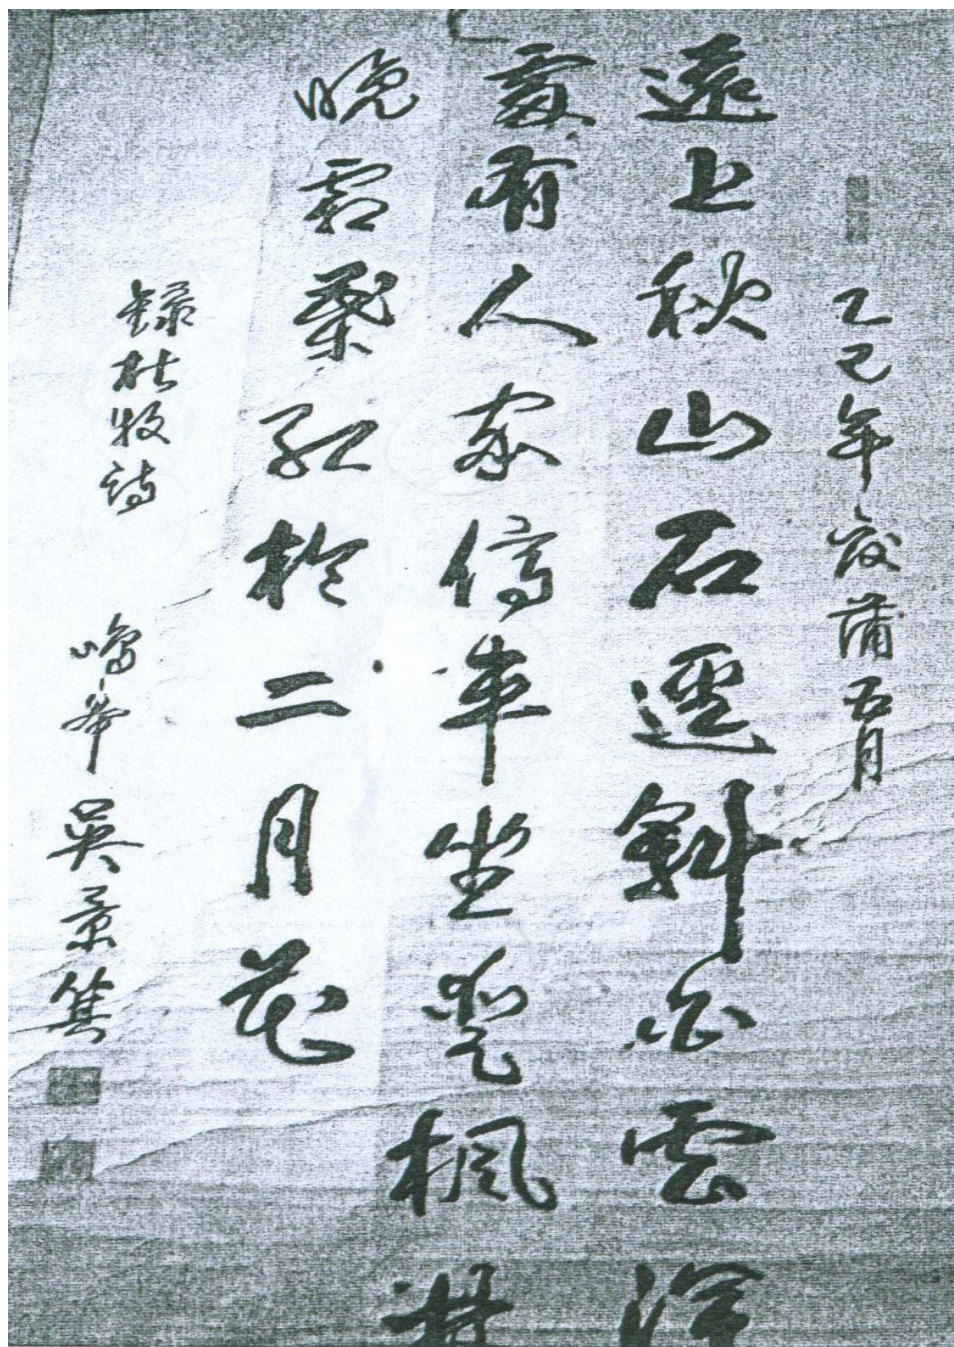 乙巳年歲蒲五月
遠上秋山石逕斜白雲深
處有人家停車坐愛楓林
晚霜葉紅於二月花
錄杜牧詩 鳴皋 吳景箕